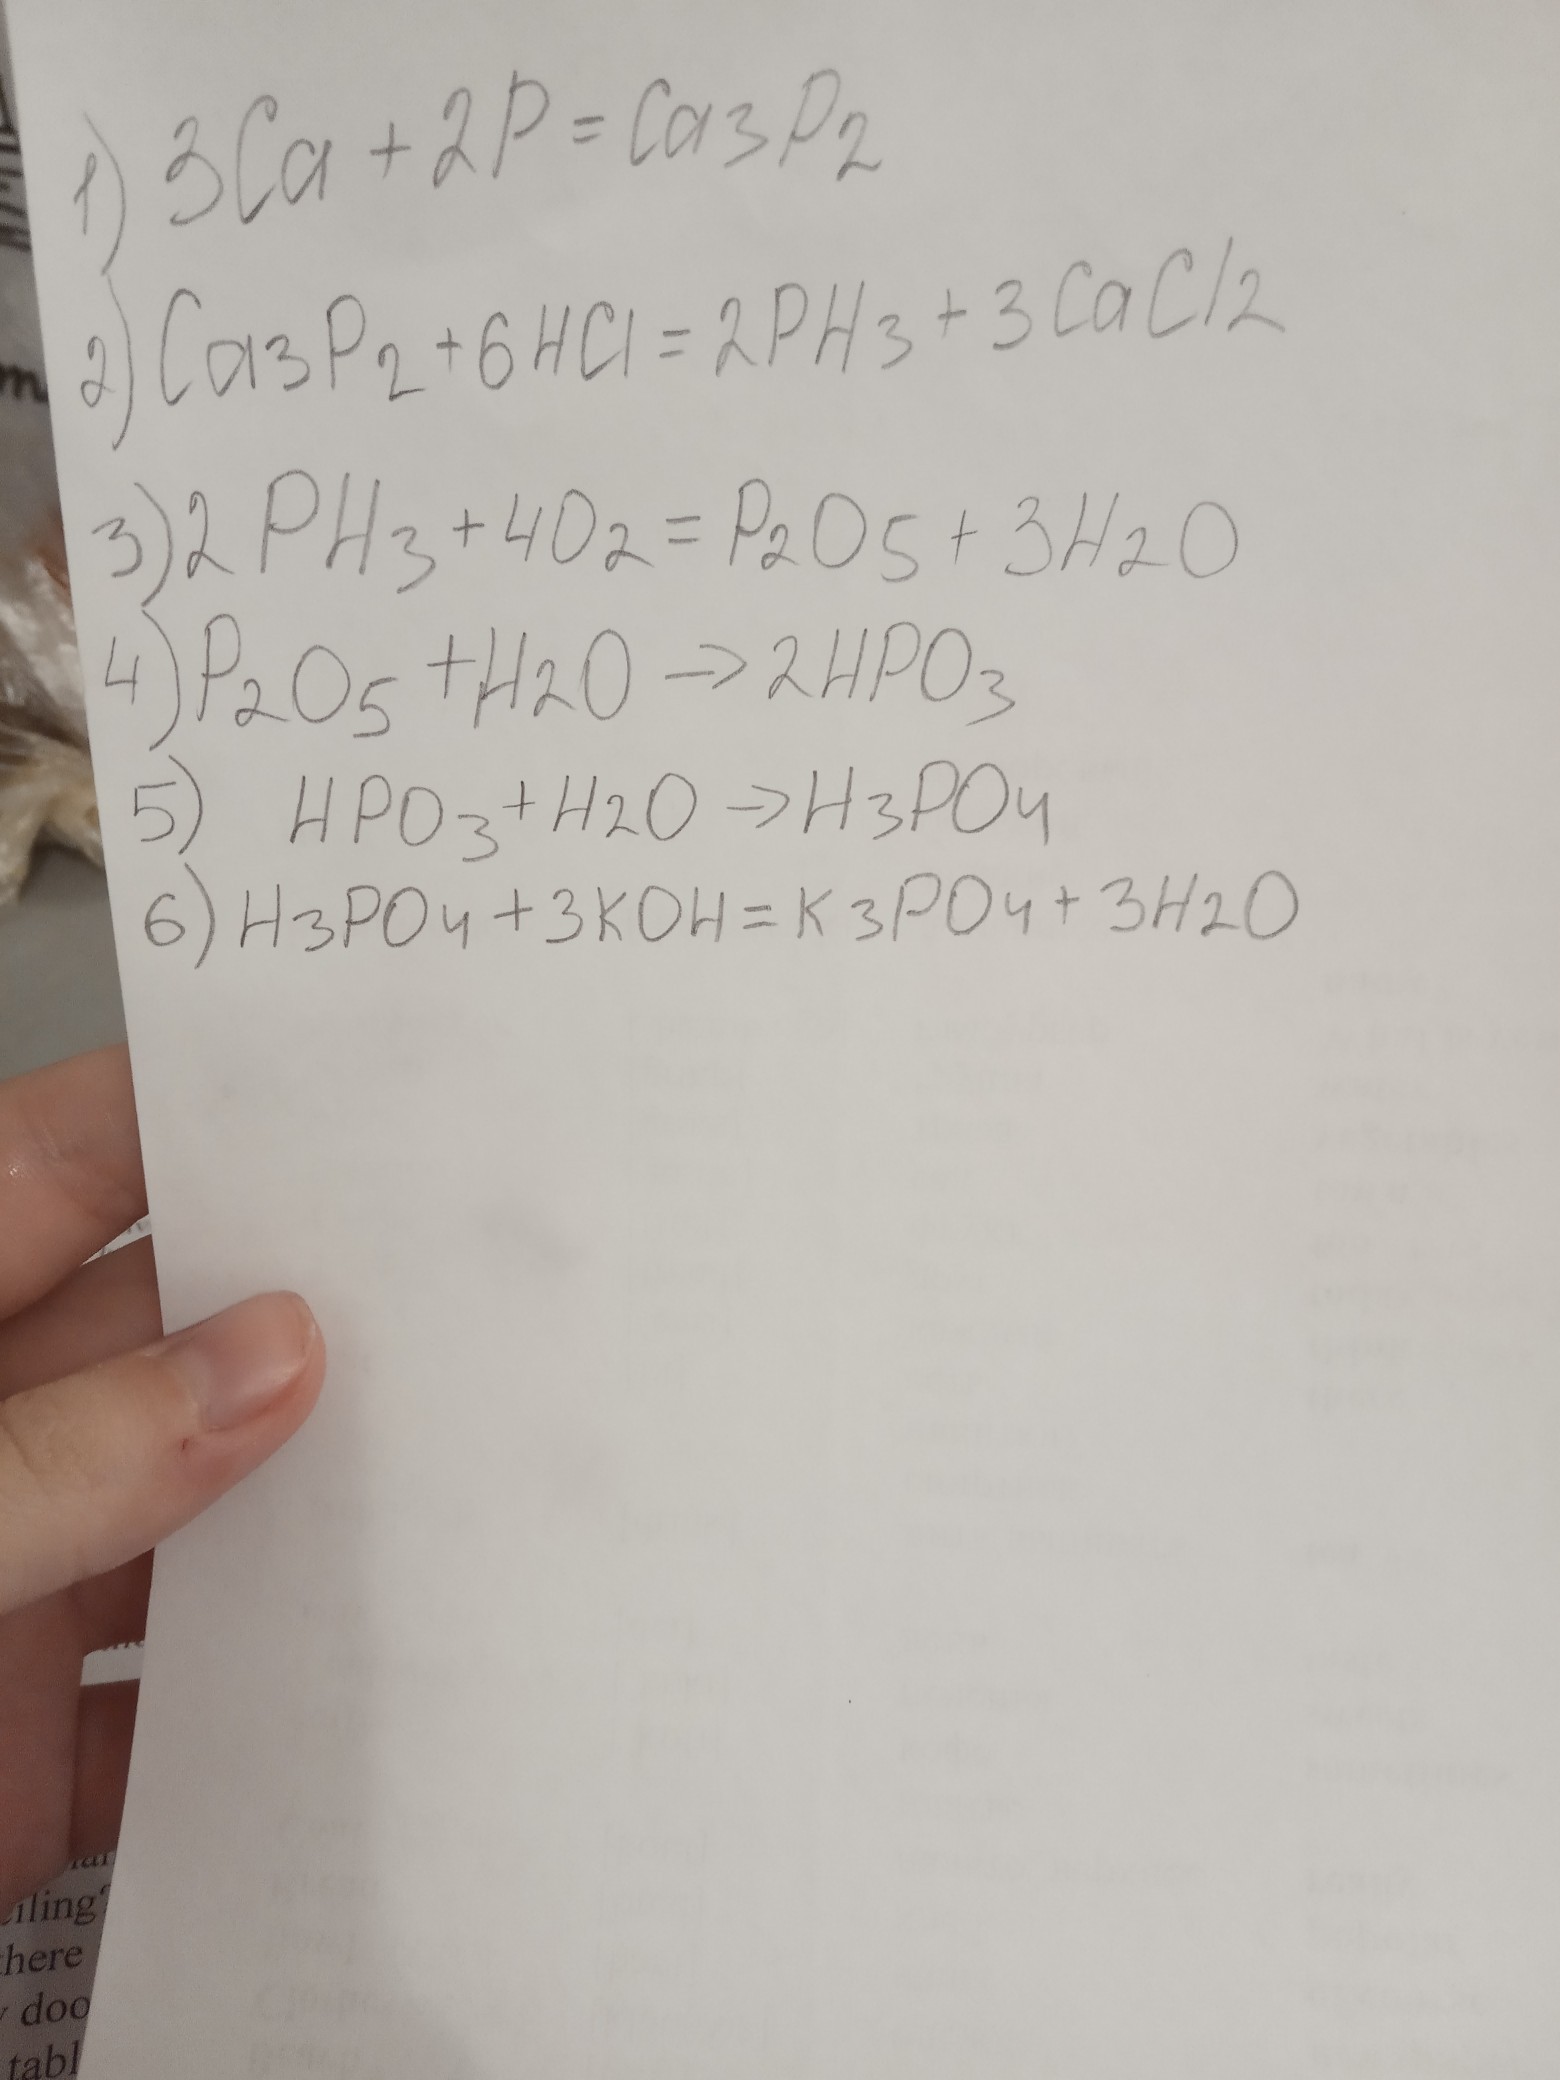 1) 3Ca + 2P = Ca3P2
2) Ca3P2 + 6HCl = 2PH3 + 3CaCl2
3) 2PH3 + 4O2 = P2O5 + 3H2O
4) P2O5 + H2O → 2HPO3
5) HPO3 + H2O → H3PO4
6) H3PO4 + 3KOH = K3PO4 + 3H2O
eiling?
there
doo
tabl